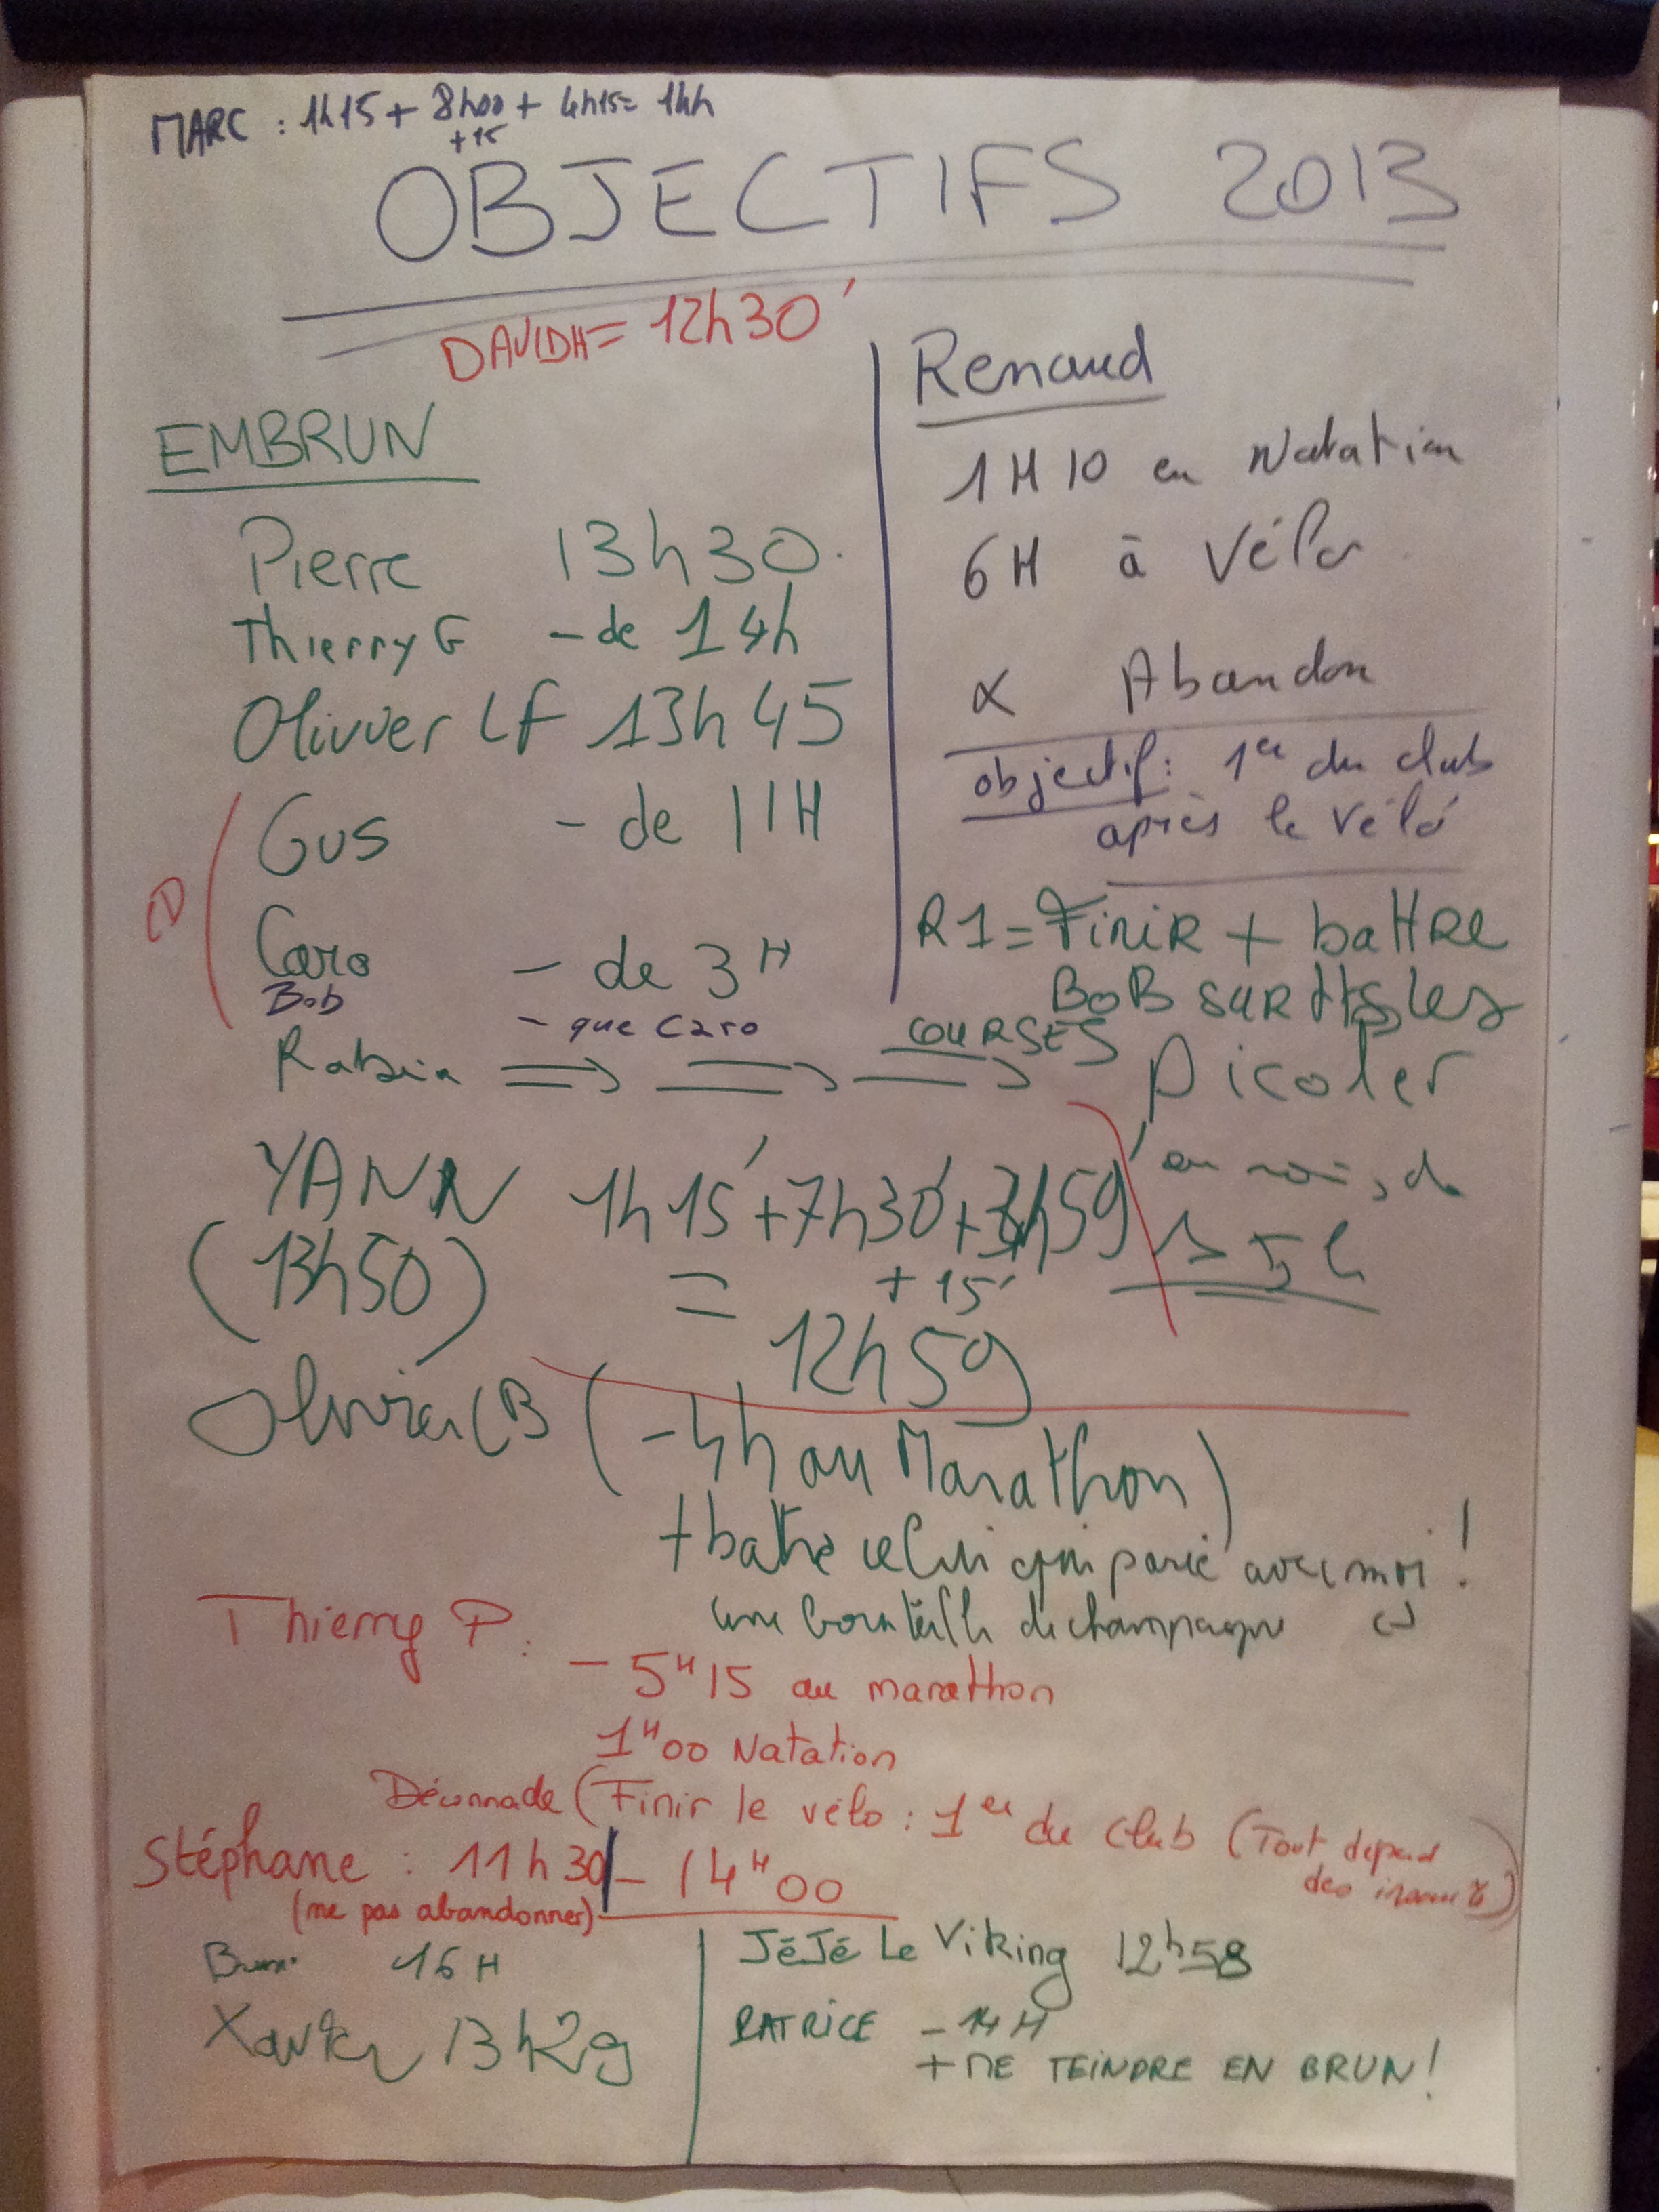 MARC : 1h15 + 8h00 + 4h15 = 14h
+15
OBJECTIFS 2013
DAVIDH = 12h30'
EMBRUN
Pierre 13h30
Thierry G - de 14h
Olivier LF 13h45
Gus - de 11H
CD
Caro - de 3H
Bob - que Caro
Renaud
1H10 en Natation
6H à Vélo
Abandon
objectif : 1er du club
après le vélo
R1 = Finir + battre
BOB sur tts les
COURSES
Rabin ⇒ ⇒ ⇒ Picoler
en moins de
5h
YANN 1h15' + 7h30' + 3h59'
(13h50) = + 15'
12h59
Olivier CB (-4h au Marathon)
+ battre celui qui parie avec moi !
une bouteille de champagne
Thierry P :
- 5H15 au marathon
1H00 Natation
Déconnade (Finir le vélo : 1er du club (Tout dépend
des
- 14H00
Stéphane : 11h30
(ne pas abandonner)
16H
Xavier 13h29
JéJé Le Viking 12h58
PATRICE - 14H
+ ME TEINDRE EN BRUN !